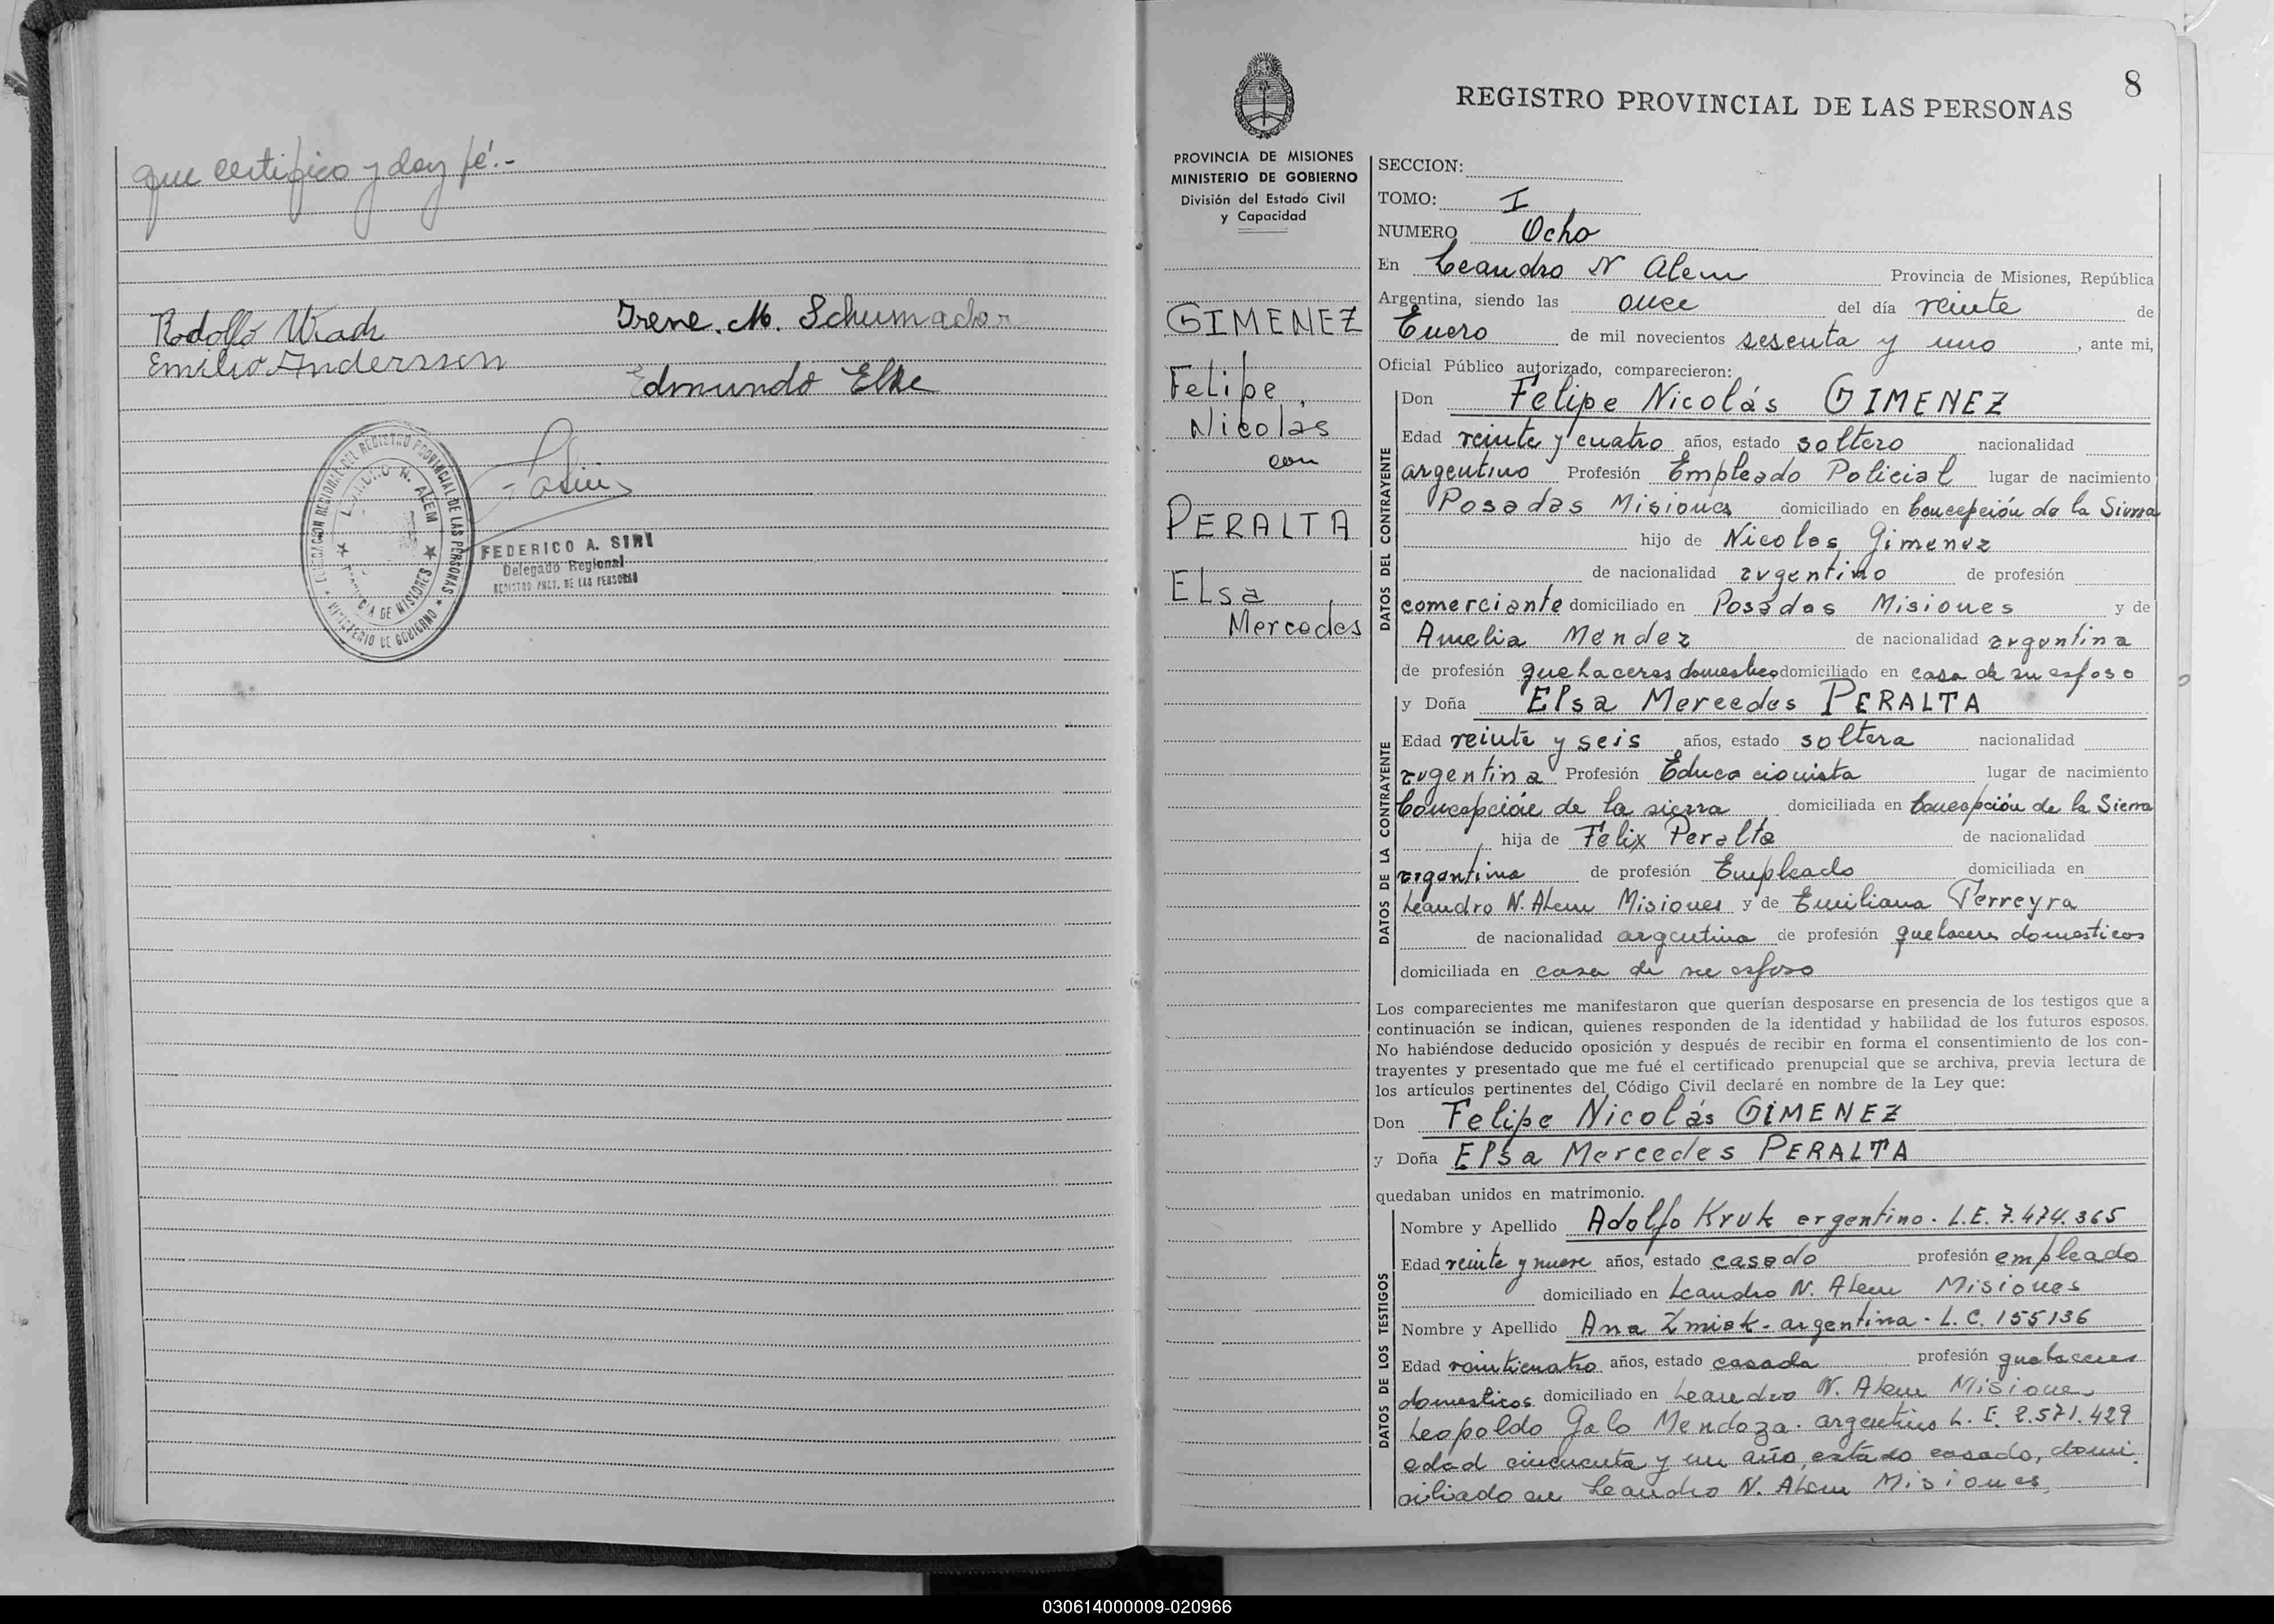 que certifico y doy fé.-
Rodolfo
Irene. M. Schumacher
Emilio Anderssen
Edmundo Elke
DELEGACION REGIONAL DEL REGISTRO PROVINCIAL DE LAS PERSONAS
LEANDRO N. ALEM
PROVINCIA DE MISIONES
MINISTERIO DE GOBIERNO
FEDERICO A. SIRI
Delegado Regional
REGISTRO PROV. DE LAS PERSONAS
8
REGISTRO PROVINCIAL DE LAS PERSONAS
PROVINCIA DE MISIONES
MINISTERIO DE GOBIERNO
División del Estado Civil
y Capacidad
GIMENEZ
Felipe
Nicolás
con
PERALTA
Elsa
Mercedes
SECCION:
TOMO: I
NUMERO Ocho
En Leandro N Alem Provincia de Misiones, República
Argentina, siendo las once del día veinte de
Enero de mil novecientos sesenta y uno, ante mi,
Oficial Público autorizado, comparecieron:
DATOS DEL CONTRAYENTE
Don Felipe Nicolás GIMENEZ
Edad veinte y cuatro años, estado soltero nacionalidad
argentino Profesión Empleado Policial lugar de nacimiento
Posadas Misiones domiciliado en Concepción de la Sierra
hijo de Nicolas Gimenez
de nacionalidad argentino de profesión
comerciante domiciliado en Posadas Misiones y de
Amelia Mendez de nacionalidad argentina
de profesión quehaceres domestico domiciliado en casa de su esposo
DATOS DE LA CONTRAYENTE
y Doña Elsa Mercedes PERALTA
Edad veinte y seis años, estado soltera nacionalidad
argentina Profesión Educacionista lugar de nacimiento
Concepción de la sierra domiciliada en Concepción de la Sierra
hija de Felix Peralta de nacionalidad
argentino de profesión Empleado domiciliada en
Leandro N. Alem Misiones y de Emiliana Ferreyra
de nacionalidad argentina de profesión quehaceres domesticos
domiciliada en casa de su esposo
Los comparecientes me manifestaron que querían desposarse en presencia de los testigos que a
continuación se indican, quienes responden de la identidad y habilidad de los futuros esposos.
No habiéndose deducido oposición y después de recibir en forma el consentimiento de los con-
trayentes y presentado que me fué el certificado prenupcial que se archiva, previa lectura de
los artículos pertinentes del Código Civil declaré en nombre de la Ley que:
Don Felipe Nicolás GIMENEZ
y Doña Elsa Mercedes PERALTA
quedaban unidos en matrimonio.
DATOS DE LOS TESTIGOS
Nombre y Apellido Adolfo Kruk argentino. L.E. 7.474.365
Edad veinte y nueve años, estado casado profesión empleado
domiciliado en Leandro N. Alem Misiones
Nombre y Apellido Ana Zmiok - argentina. L.C. 155136
Edad veinticuatro años, estado casada profesión quehaceres
domesticos domiciliado en Leandro N. Alem Misiones
Leopoldo Galo Mendoza. argentino L. E. 2.571.429
edad cincuenta y un año, estado casado, domi
ciliado en Leandro N. Alem Misiones,
030614000009-020966